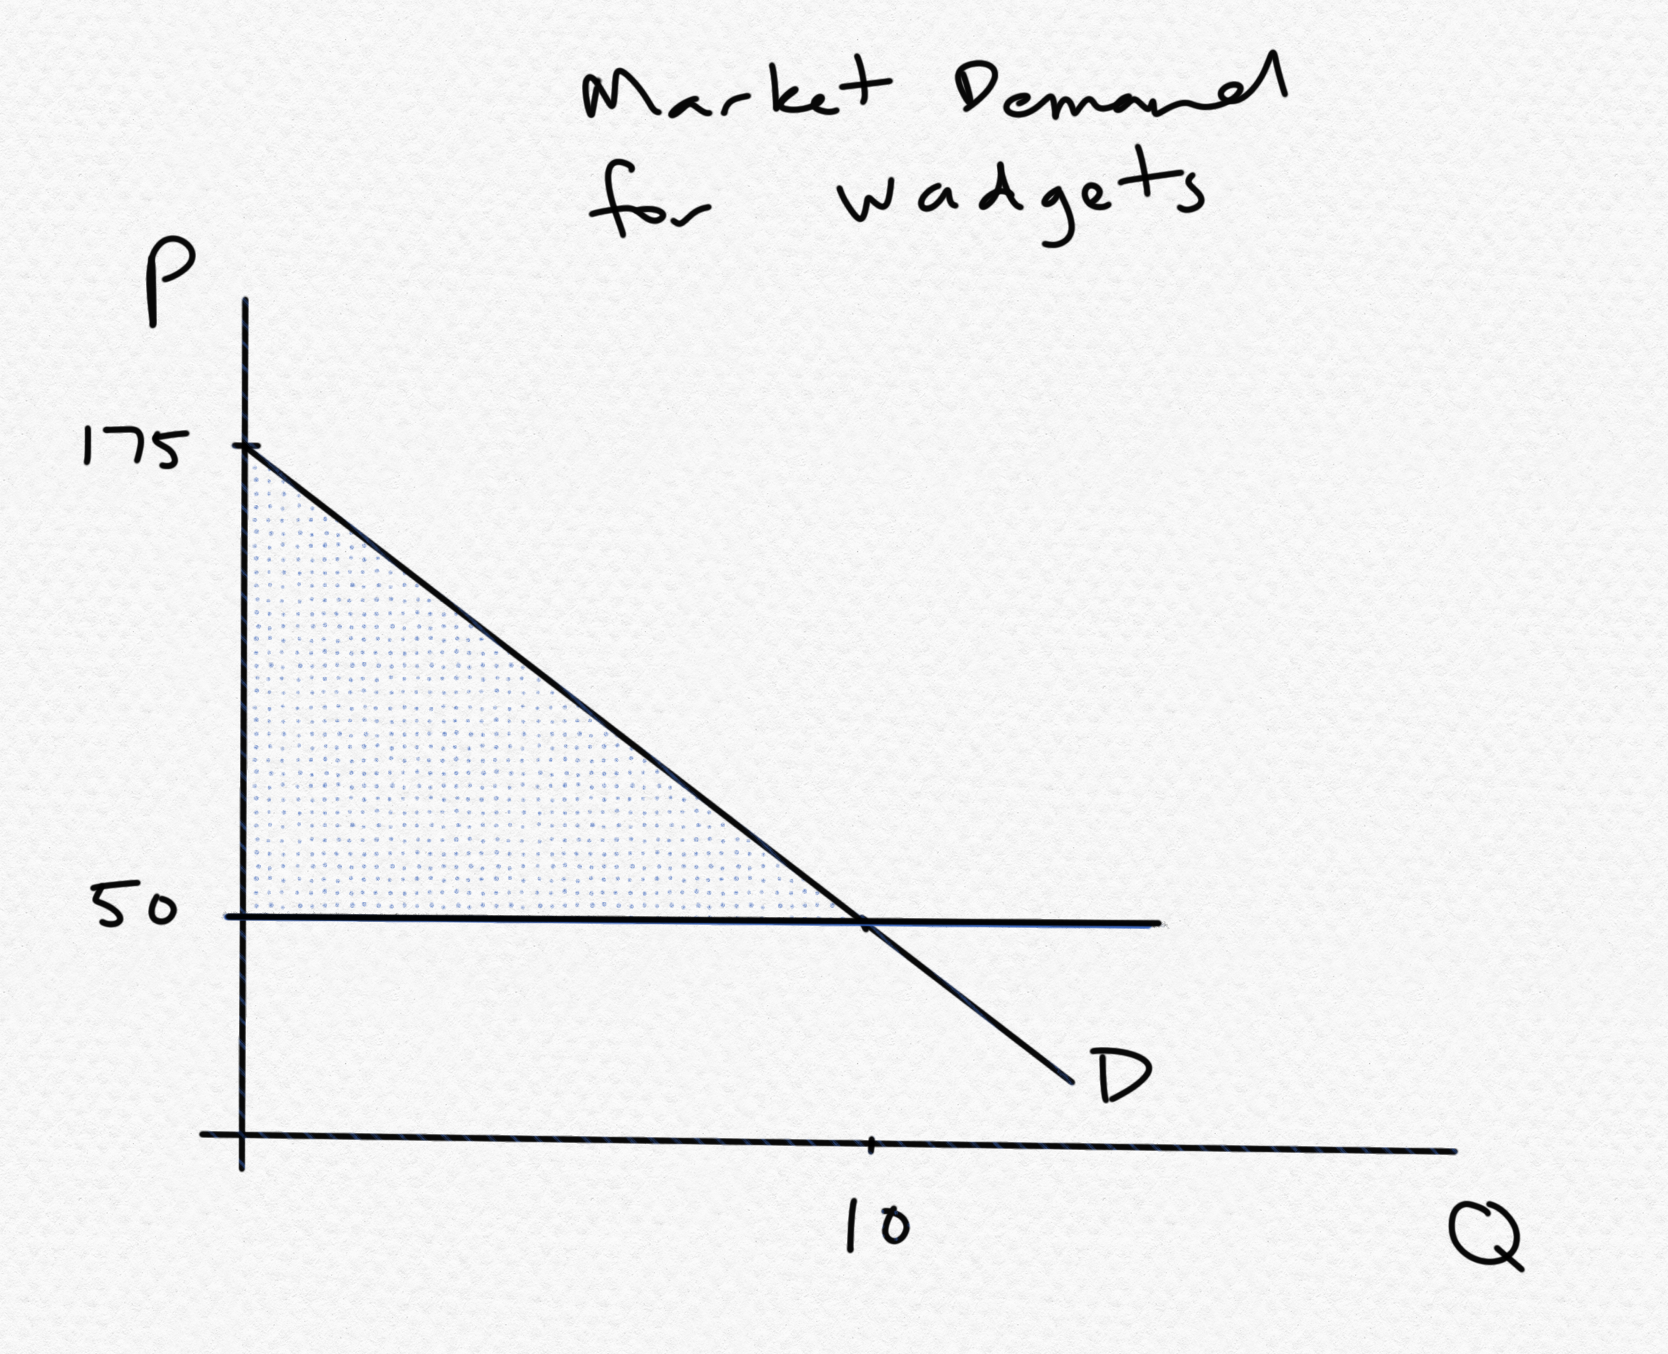 Market Demand
for wadgets
P
175
50
D
10
Q